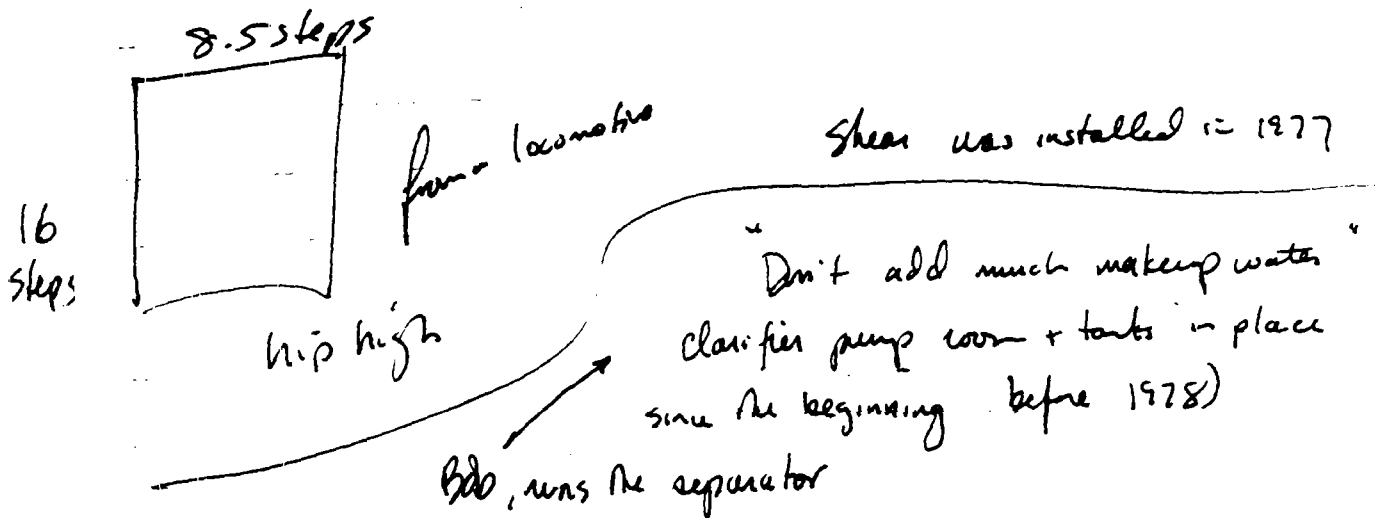 8.5 steps
16
steps
hip high
from locomotive
Shear was installed in 1977
"Don't add much makeup water"
clarifier pump room + tanks in place
since the beginning before 1978)
Bob, runs the separator